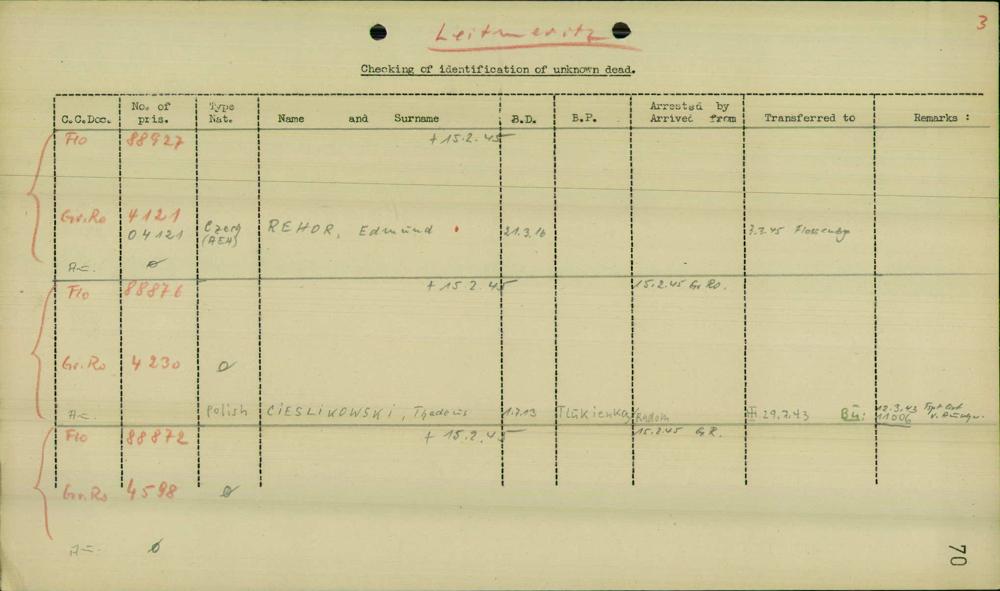 3
Leitmeritz
Checking of identification of unknown dead.
C.C.Doc. No. of pris. Type Nat. Name and Surname B.D. B.P. Arrested by Arrived from Transferred to Remarks :
Flo 88927 + 15.2.45
Gr.Ro 4121
04121 Czech (AEH) REHOR, Edmund 21.3.16 Flossenbg
Flo 88876 + 15.2.45 15.2.45 Gr Ro.
Gr.Ro 4230 ø
Polish CIESLIKOWSKI, Tadeus 1.7.13 Tlukienka Radom 29.7.43 Bü: 12.3.43
11006
Flo 88872 + 15.2.45 15.2.45 G.R.
Gr.Ro 4598 ø
ø
70